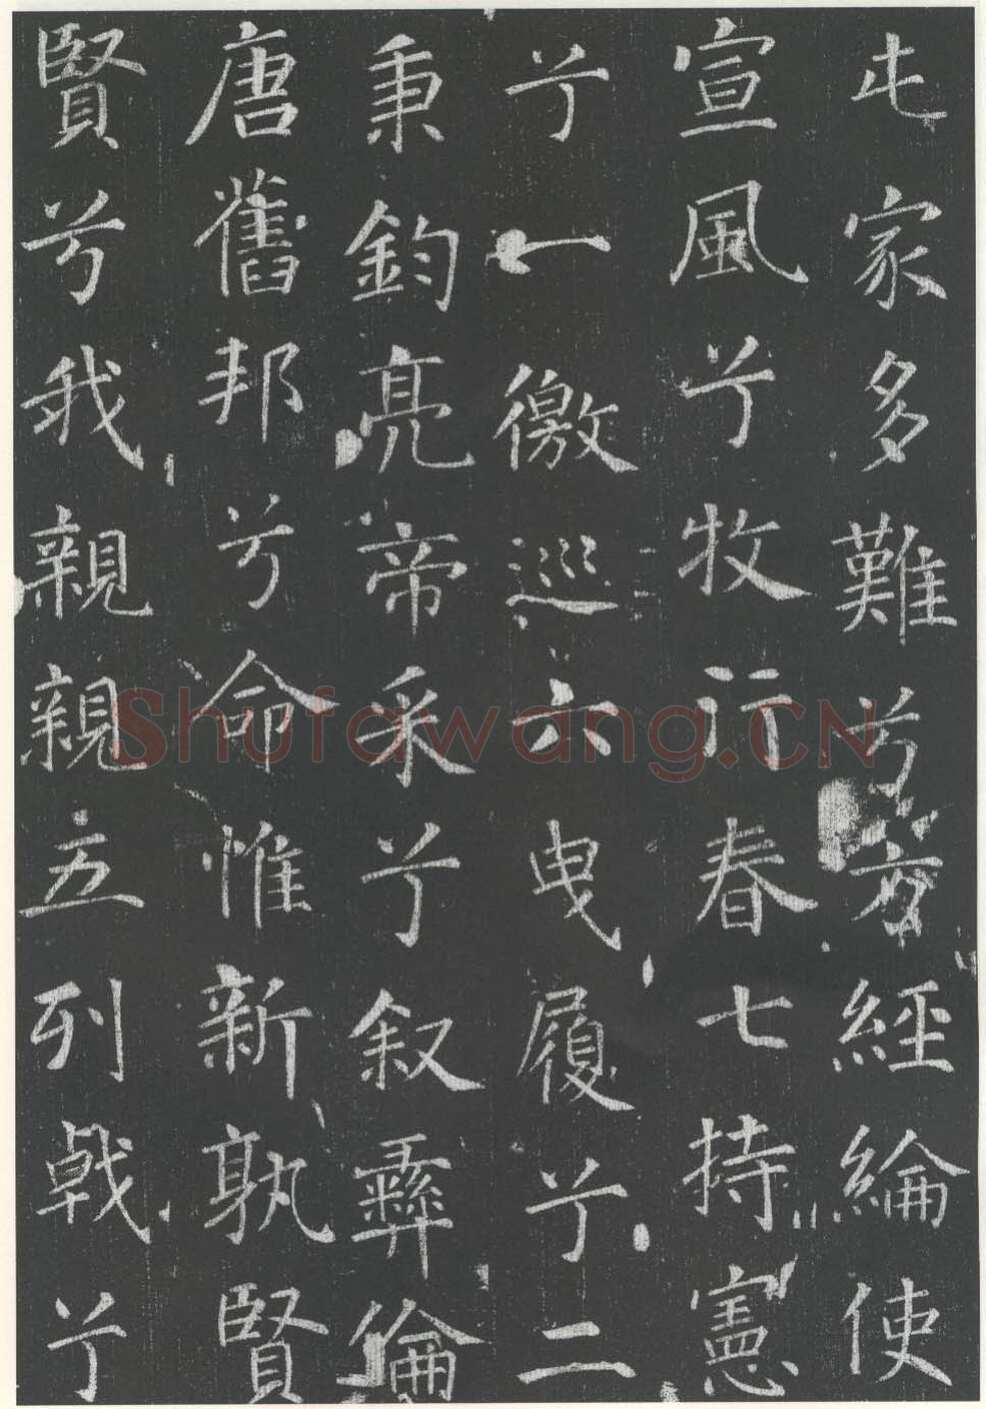 屯家多難兮孝經綸使
宣風兮牧行春七持憲
兮一徼巡六曳履兮二
秉鈞亮帝采兮叙彝倫
唐舊邦兮命惟新孰賢
賢兮我親親五列戟兮
Shufawang.CN